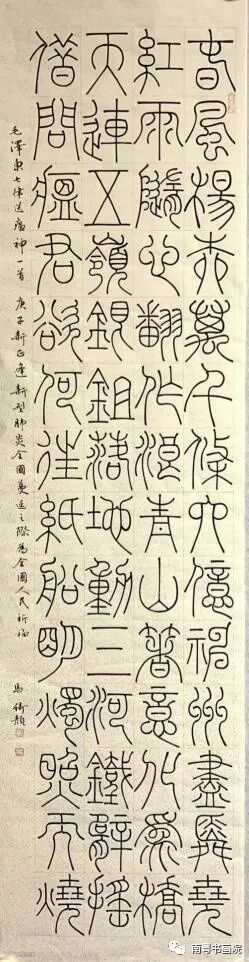 春風楊柳萬千條六億神州盡舜堯
紅雨隨心翻作浪青山著意化為橋
天連五嶺銀鉏落地動三河鐵臂搖
借問瘟君欲何往紙船明燭照天燒
毛澤東七律送瘟神一首 庚子新正逢新型肺炎全國蔓延之際為全國人民祈福
馬
南粤书画院